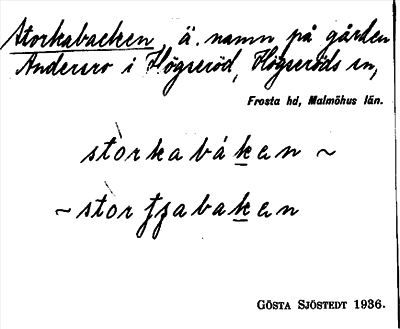 Storkabacken, ä. namn på gården
Andersro i Högseröd, Högseröds sn,
Frosta hd, Malmöhus län.
stòrkabákan ~
~ stòrʈʂabakan
GÖSTA SJÖSTEDT 1936.